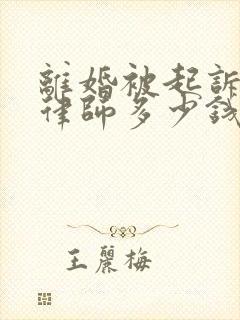 離婚被起訴
律師多少錢
王麗梅